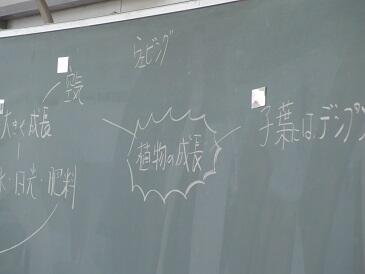 ウェビング
大きく成長
植物の成長
子葉にはデンプン
水・日光・肥料